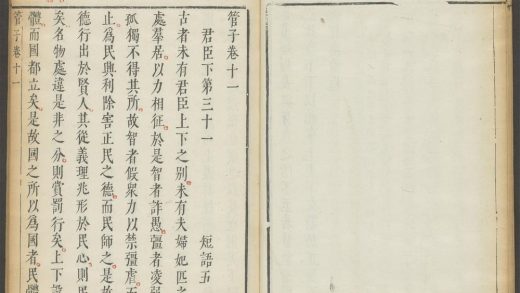 管子卷十一
君臣下第三十一 短語五
古者未有君臣上下之別未有夫婦妃匹之
處羣居以力相征於是智者詐愚彊者凌弱
孤獨不得其所故智者假衆力以禁彊虐而
止爲民興利除害正民之德而民師之是故
德行出於賢人其從義理兆形於民心則民
矣名物處違是非之分則賞罰行矣上下設
體而國都立矣是故國之所以爲國者民體
管子卷十一